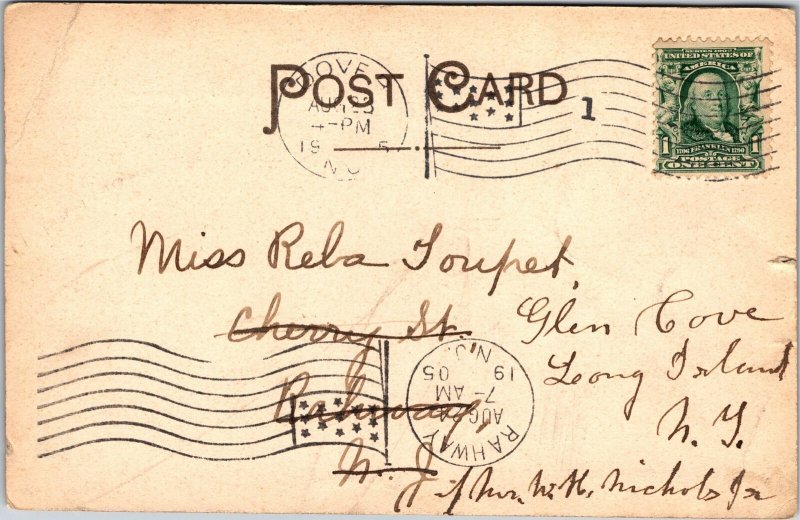 POST CARD
DOVER
4-PM
1
SERIES 1902
UNITED STATES OF
AMERICA
1 1706 FRANKLIN 1790 1
POSTAGE
ONE CENT
Miss Reba Toupet,
Cherry St.
Rahway,
N. J.
Glen Cove
Long Island
N. Y.
c/o Mr. W. H. Nichols Jr
RAHWAY
AUG
7-AM
19 05
N.J.